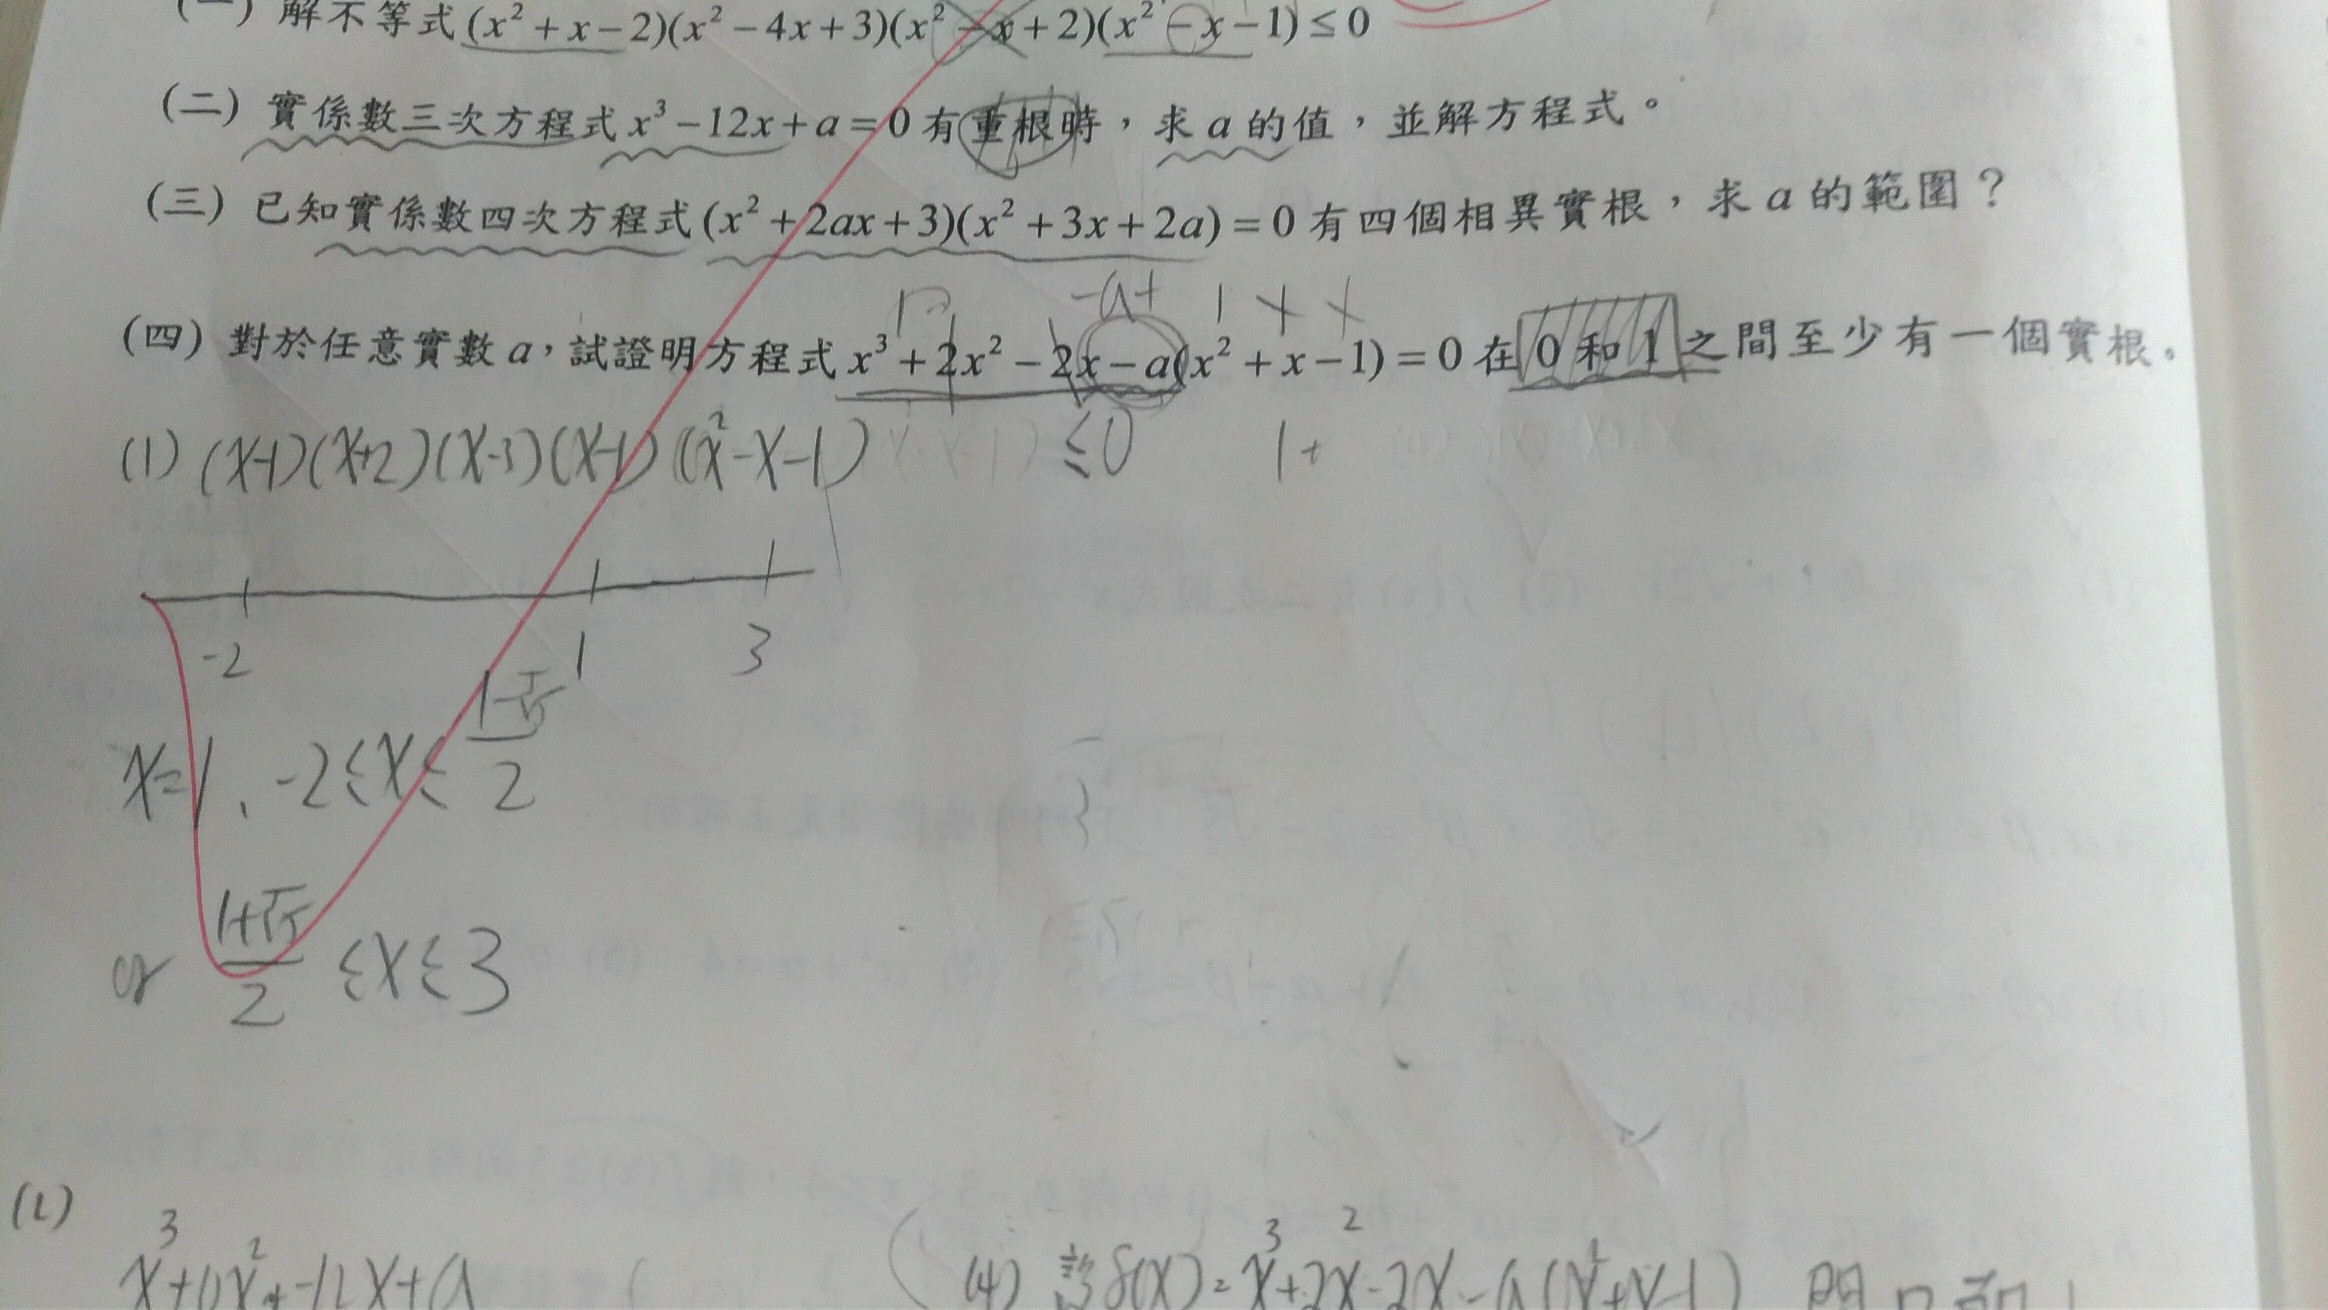 (一) 解不等式 (x²+x−2)(x²−4x+3)(x²−x+2)(x²−x−1)≤0
(二) 實係數三次方程式 x³−12x+a=0 有重根時，求 a 的值，並解方程式。
(三) 已知實係數四次方程式 (x²+2ax+3)(x²+3x+2a)=0 有四個相異實根，求 a 的範圍？
−a+ 1 + +
(四) 對於任意實數 a，試證明方程式 x³+2x²−2x−a(x²+x−1)=0 在 0 和 1 之間至少有一個實根。
(1) (x-1)(x+2)(x-3)(x-1)(x²-x-1) ≤0 1+
-2 1 3
x=1、-2≤x≤(1-√5)/2
or (1+√5)/2 ≤x≤3
(2)
x³+0x²+-12x+a
(4) 設f(x)=x³+2x²-2x-a(x²+x-1)